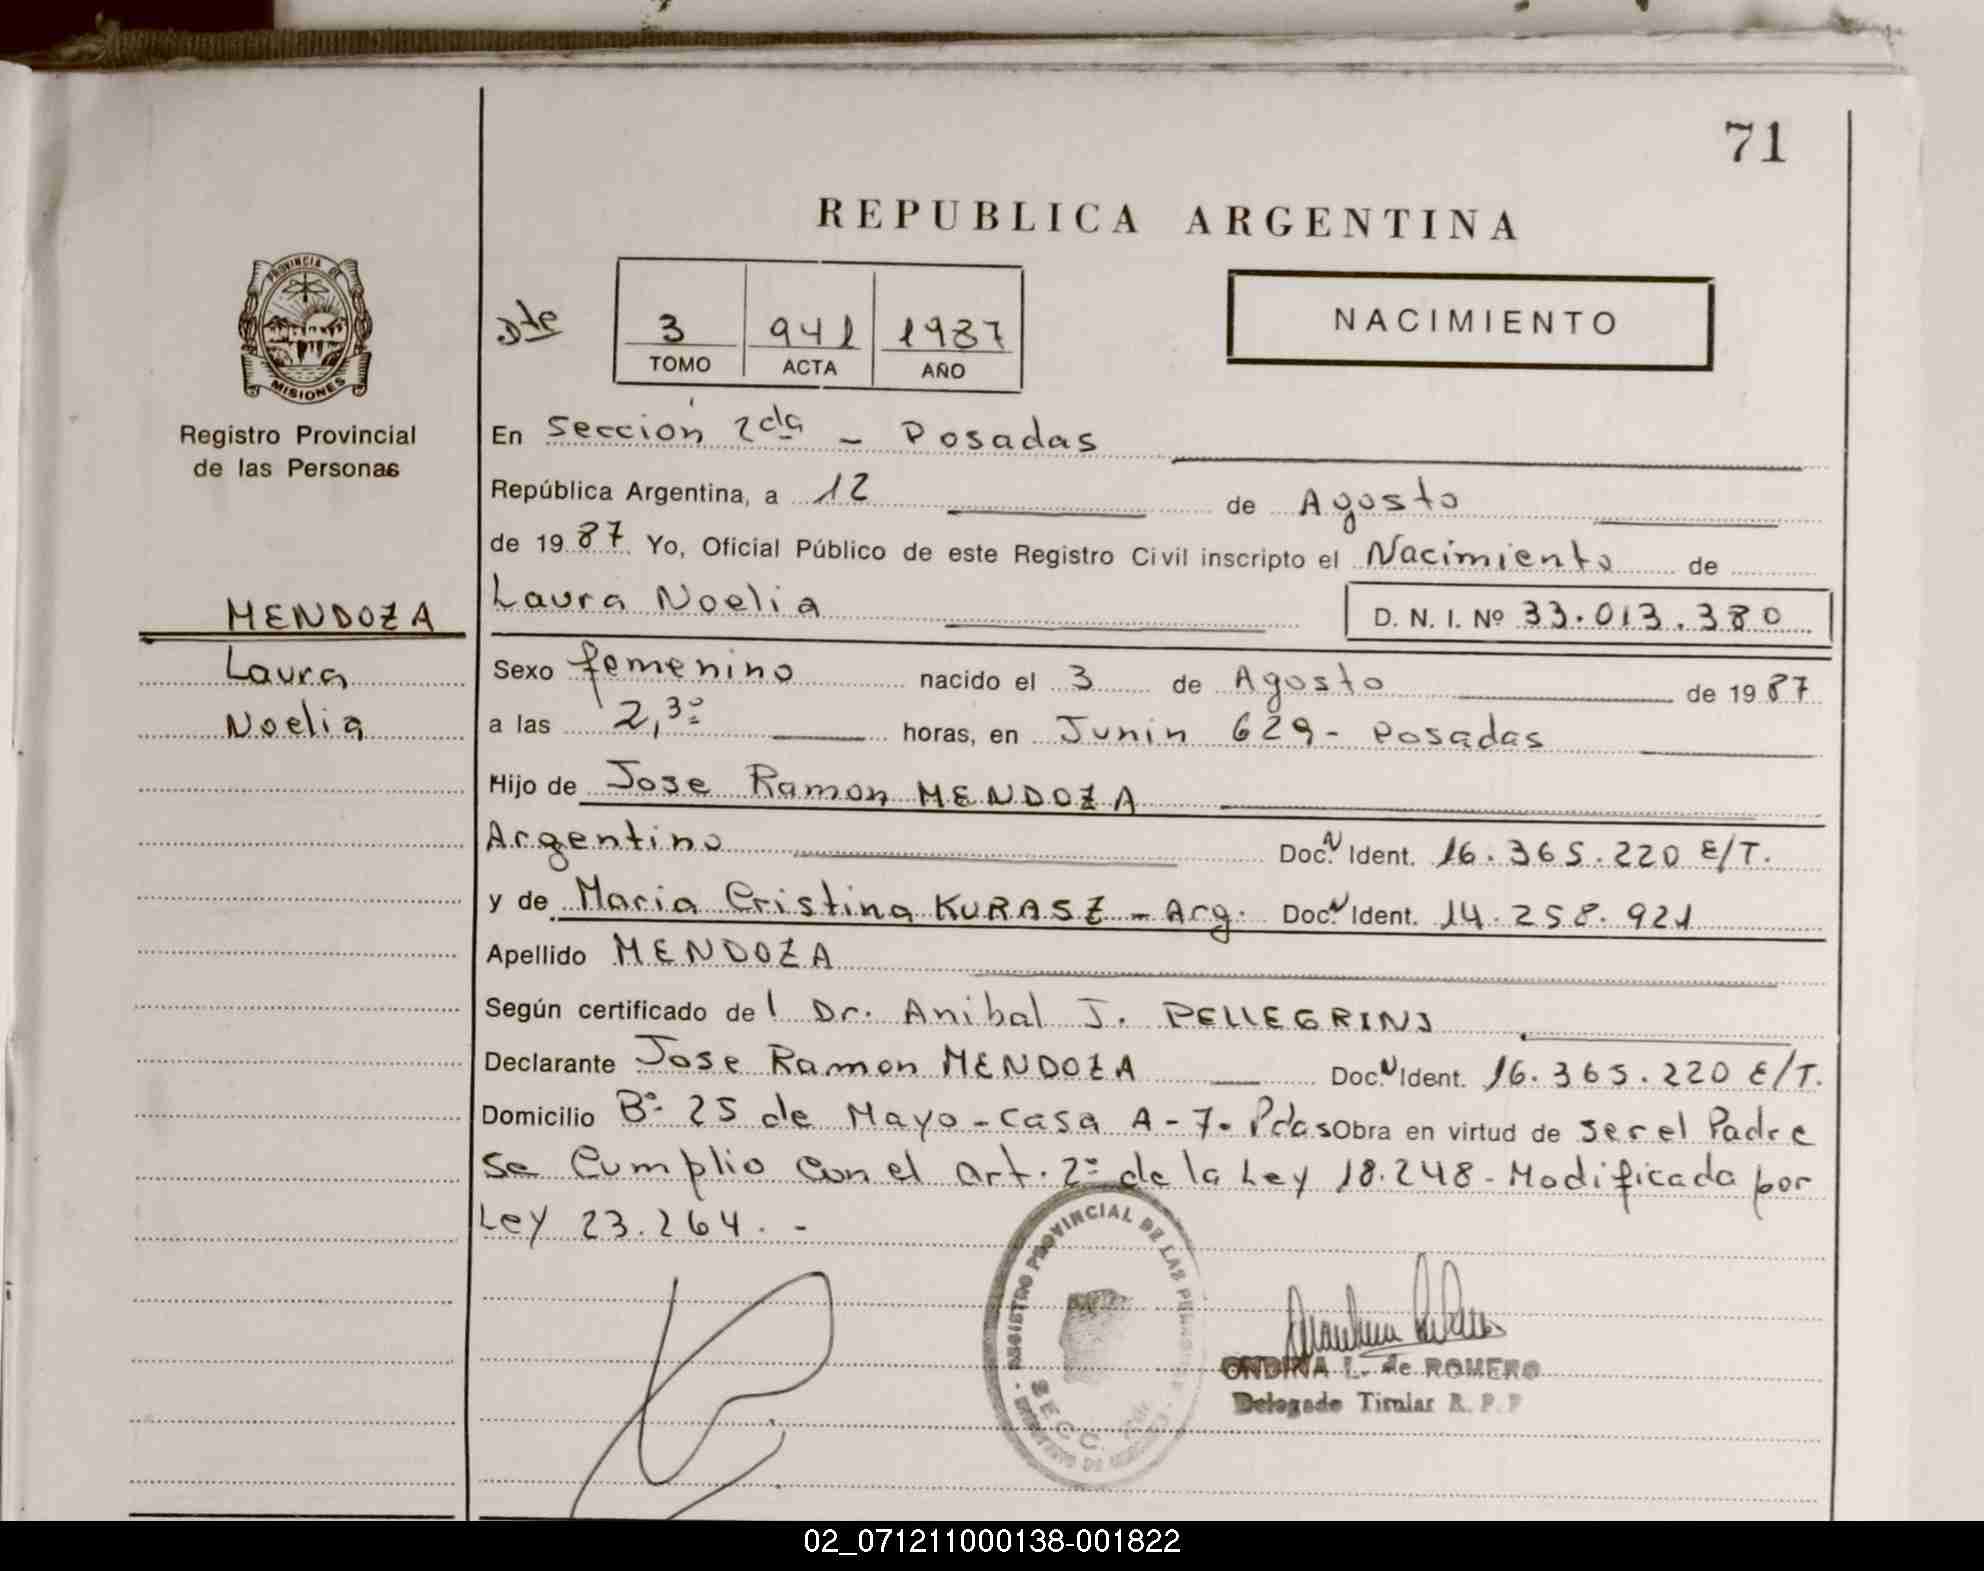 71
REPUBLICA ARGENTINA
PROVINCIA DE
MISIONES
Registro Provincial
de las Personas
Dte
3 941 1987
TOMO ACTA AÑO
NACIMIENTO
En Sección 2da - Posadas
República Argentina, a 12 de Agosto
de 1987 Yo, Oficial Público de este Registro Civil inscripto el Nacimiento de
Laura Noelia D. N. I. Nº 33.013.380
MENDOZA
Laura
Noelia
Sexo femenino nacido el 3 de Agosto de 1987
a las 2,30 horas, en Junin 629- Posadas
Hijo de Jose Ramon MENDOZA
Argentino Doc. N Ident. 16.365.220 E/T.
y de Maria Cristina KURASZ - Arg. Doc. N Ident. 14.258.921
Apellido MENDOZA
Según certificado del Dr. Anibal J. PELLEGRINI
Declarante Jose Ramon MENDOZA Doc. N Ident. 16.365.220 E/T.
Domicilio Bº 25 de Mayo-casa A-7. Pdas Obra en virtud de ser el Padre
se Cumplio con el art. 2º de la Ley 18.248- Modificada por
Ley 23.264. -
REGISTRO PROVINCIAL DE LAS
SECC.
ONDINA L. de ROMERO
Delegado Titular R. P. P
02_071211000138-001822